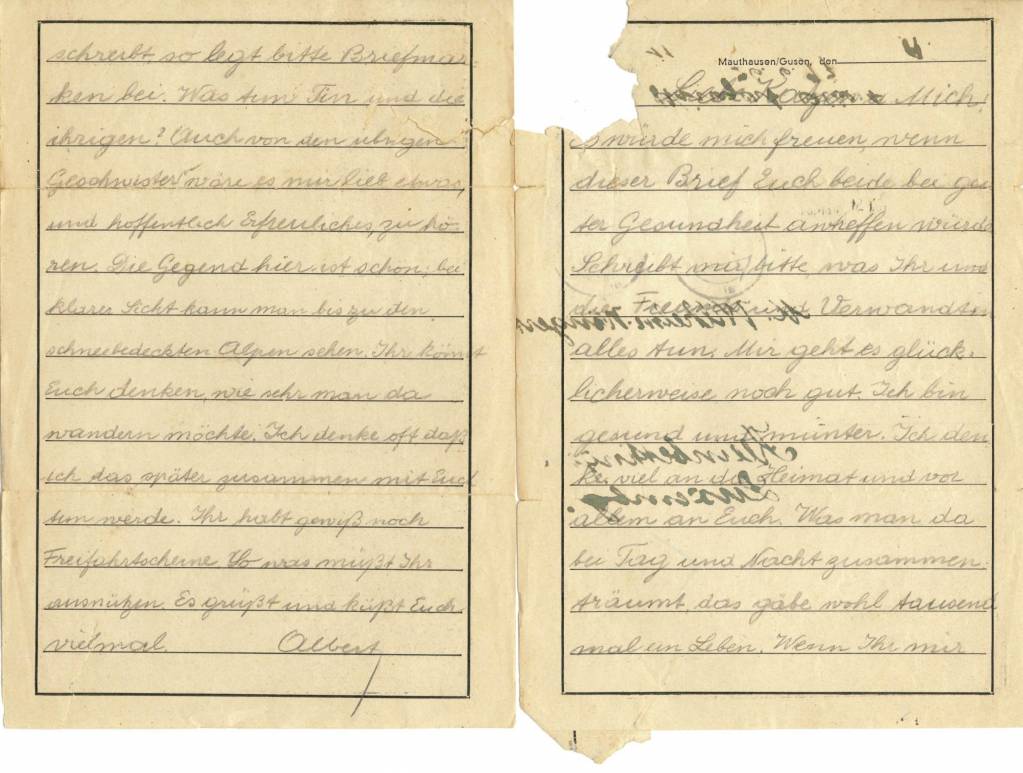 Mauthausen/Gusen, den
Mich
es würde mich freuen, wenn
dieser Brief Euch beide bei gu
ter Gesundheit antreffen würde
Schreibt mir bitte, was Ihr und
die Verwandten
alles tun. Mir geht es glück-
licherweise noch gut. Ich bin
gesund und munter. Ich den
ke viel an die Heimat und vor
allem an Euch. Was man da
bei Tag und Nacht zusammen-
träumt, das gäbe wohl tausend
mal ein Leben. Wenn Ihr mir
schreibt, so legt bitte Briefmar-
ken bei. Was tun Tin und die
ihrigen? Auch von den übrigen
Geschwister wäre es mir lieb etwas,
und hoffentlich Erfreuliches, zu hö-
ren. Die Gegend hier ist schön; bei
klarer Sicht kann man bis zu den
schneebedeckten Alpen sehen. Ihr könnt
Euch denken, wie sehr man da
wandern möchte. Ich denke oft daß
ich das später zusammen mit Euch
tun werde. Ihr habt gewiß noch
Freifahrtscheine. So was müßt Ihr
ausnützen. Es grüßt und küßt Euch
vielmal Albert